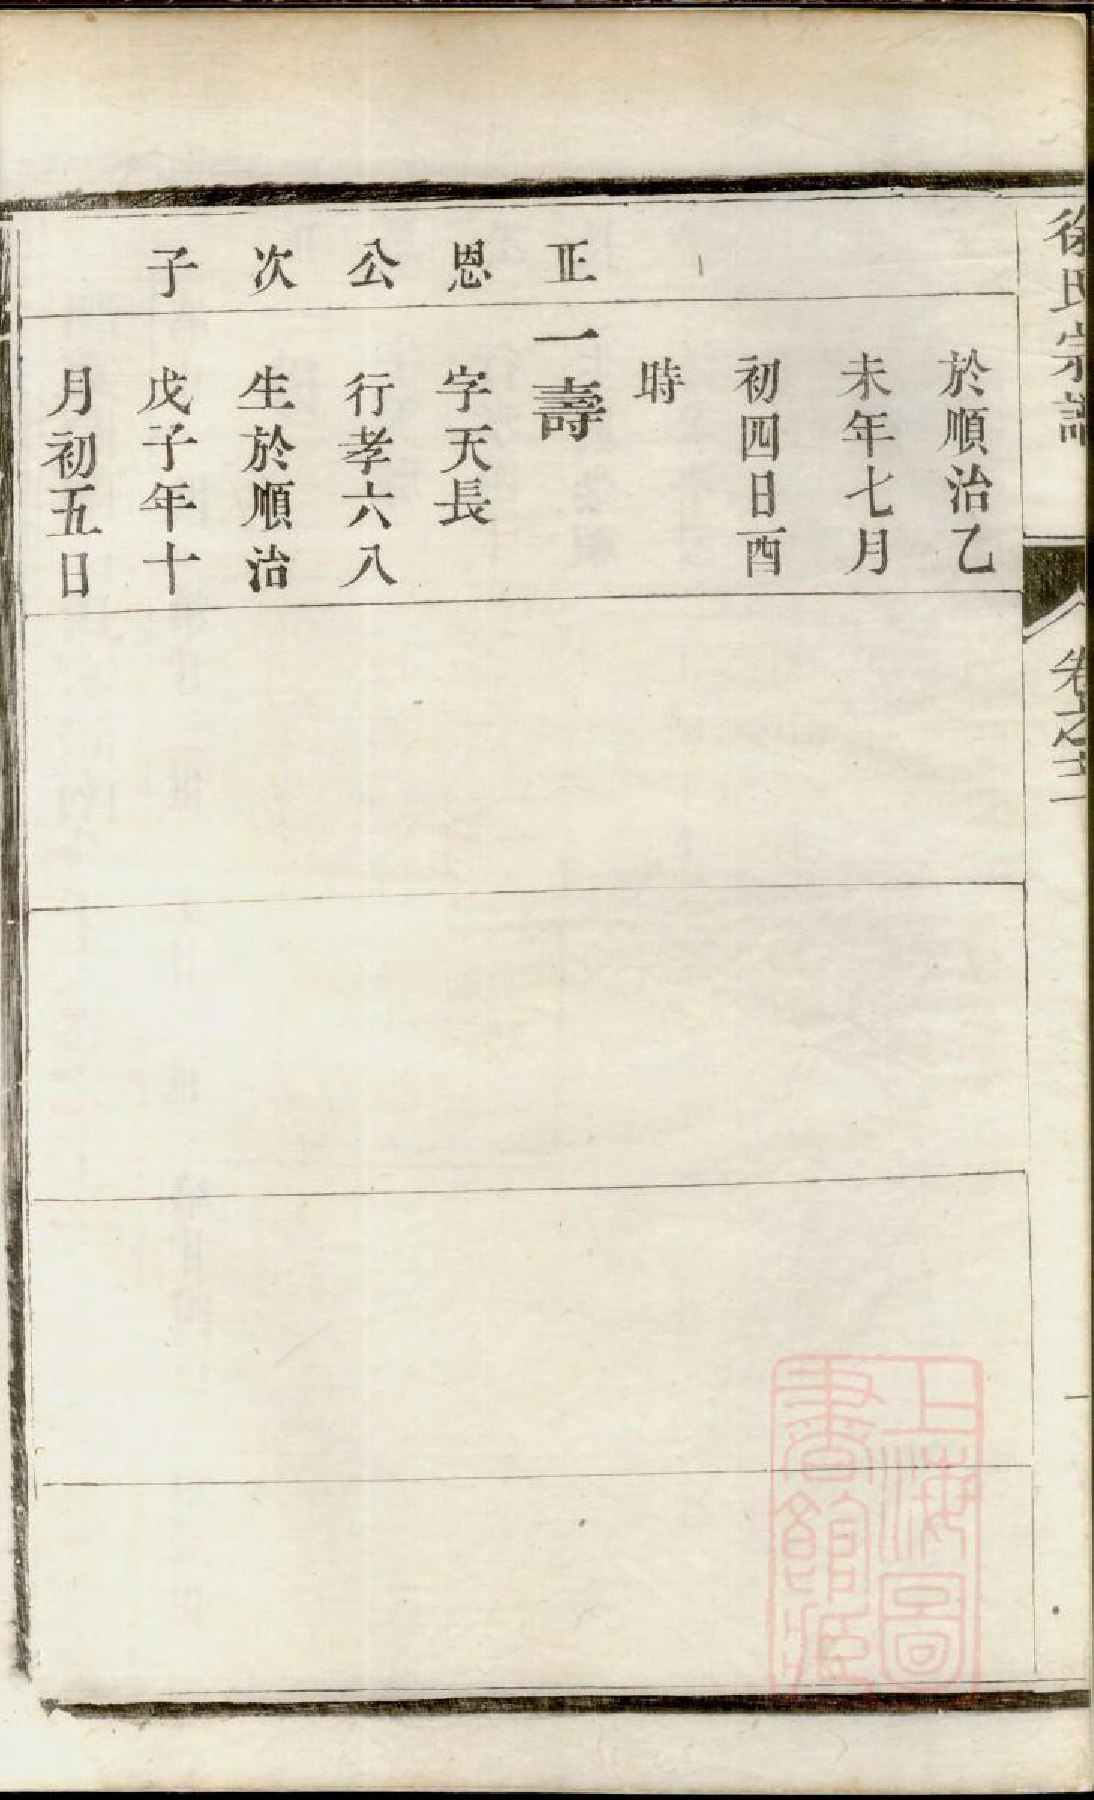 徐氏宗譜
卷之二
一
於順治乙
未年七月
初四日酉
時
正恩公次子
一壽
字天長
行孝六八
生於順治
戊子年十
月初五日
上海圖
書館藏